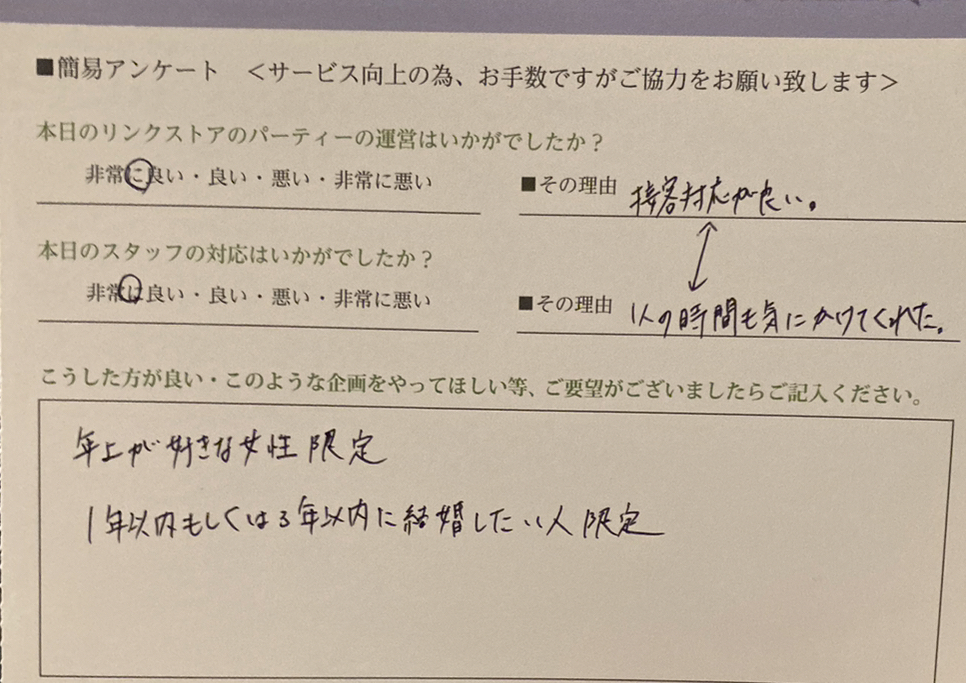 ■簡易アンケート <サービス向上の為、お手数ですがご協力をお願い致します>
本日のリンクストアのパーティーの運営はいかがでしたか?
非常に良い・良い・悪い・非常に悪い
■その理由 接客対応が良い。
本日のスタッフの対応はいかがでしたか?
非常に良い・良い・悪い・非常に悪い
■その理由 1人の時間も気にかけてくれた。
こうした方が良い・このような企画をやってほしい等、ご要望がございましたらご記入ください。
年上が好きな女性限定
1年以内もしくは3年以内に結婚したい人限定